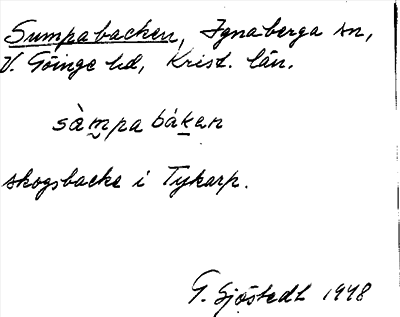 Sumpabacken, Ignaberga sn,
V. Göinge hd, Krist. län.
sàm̰pa bákan
skogsbacke i Tykarp.
G. Sjöstedt 1948